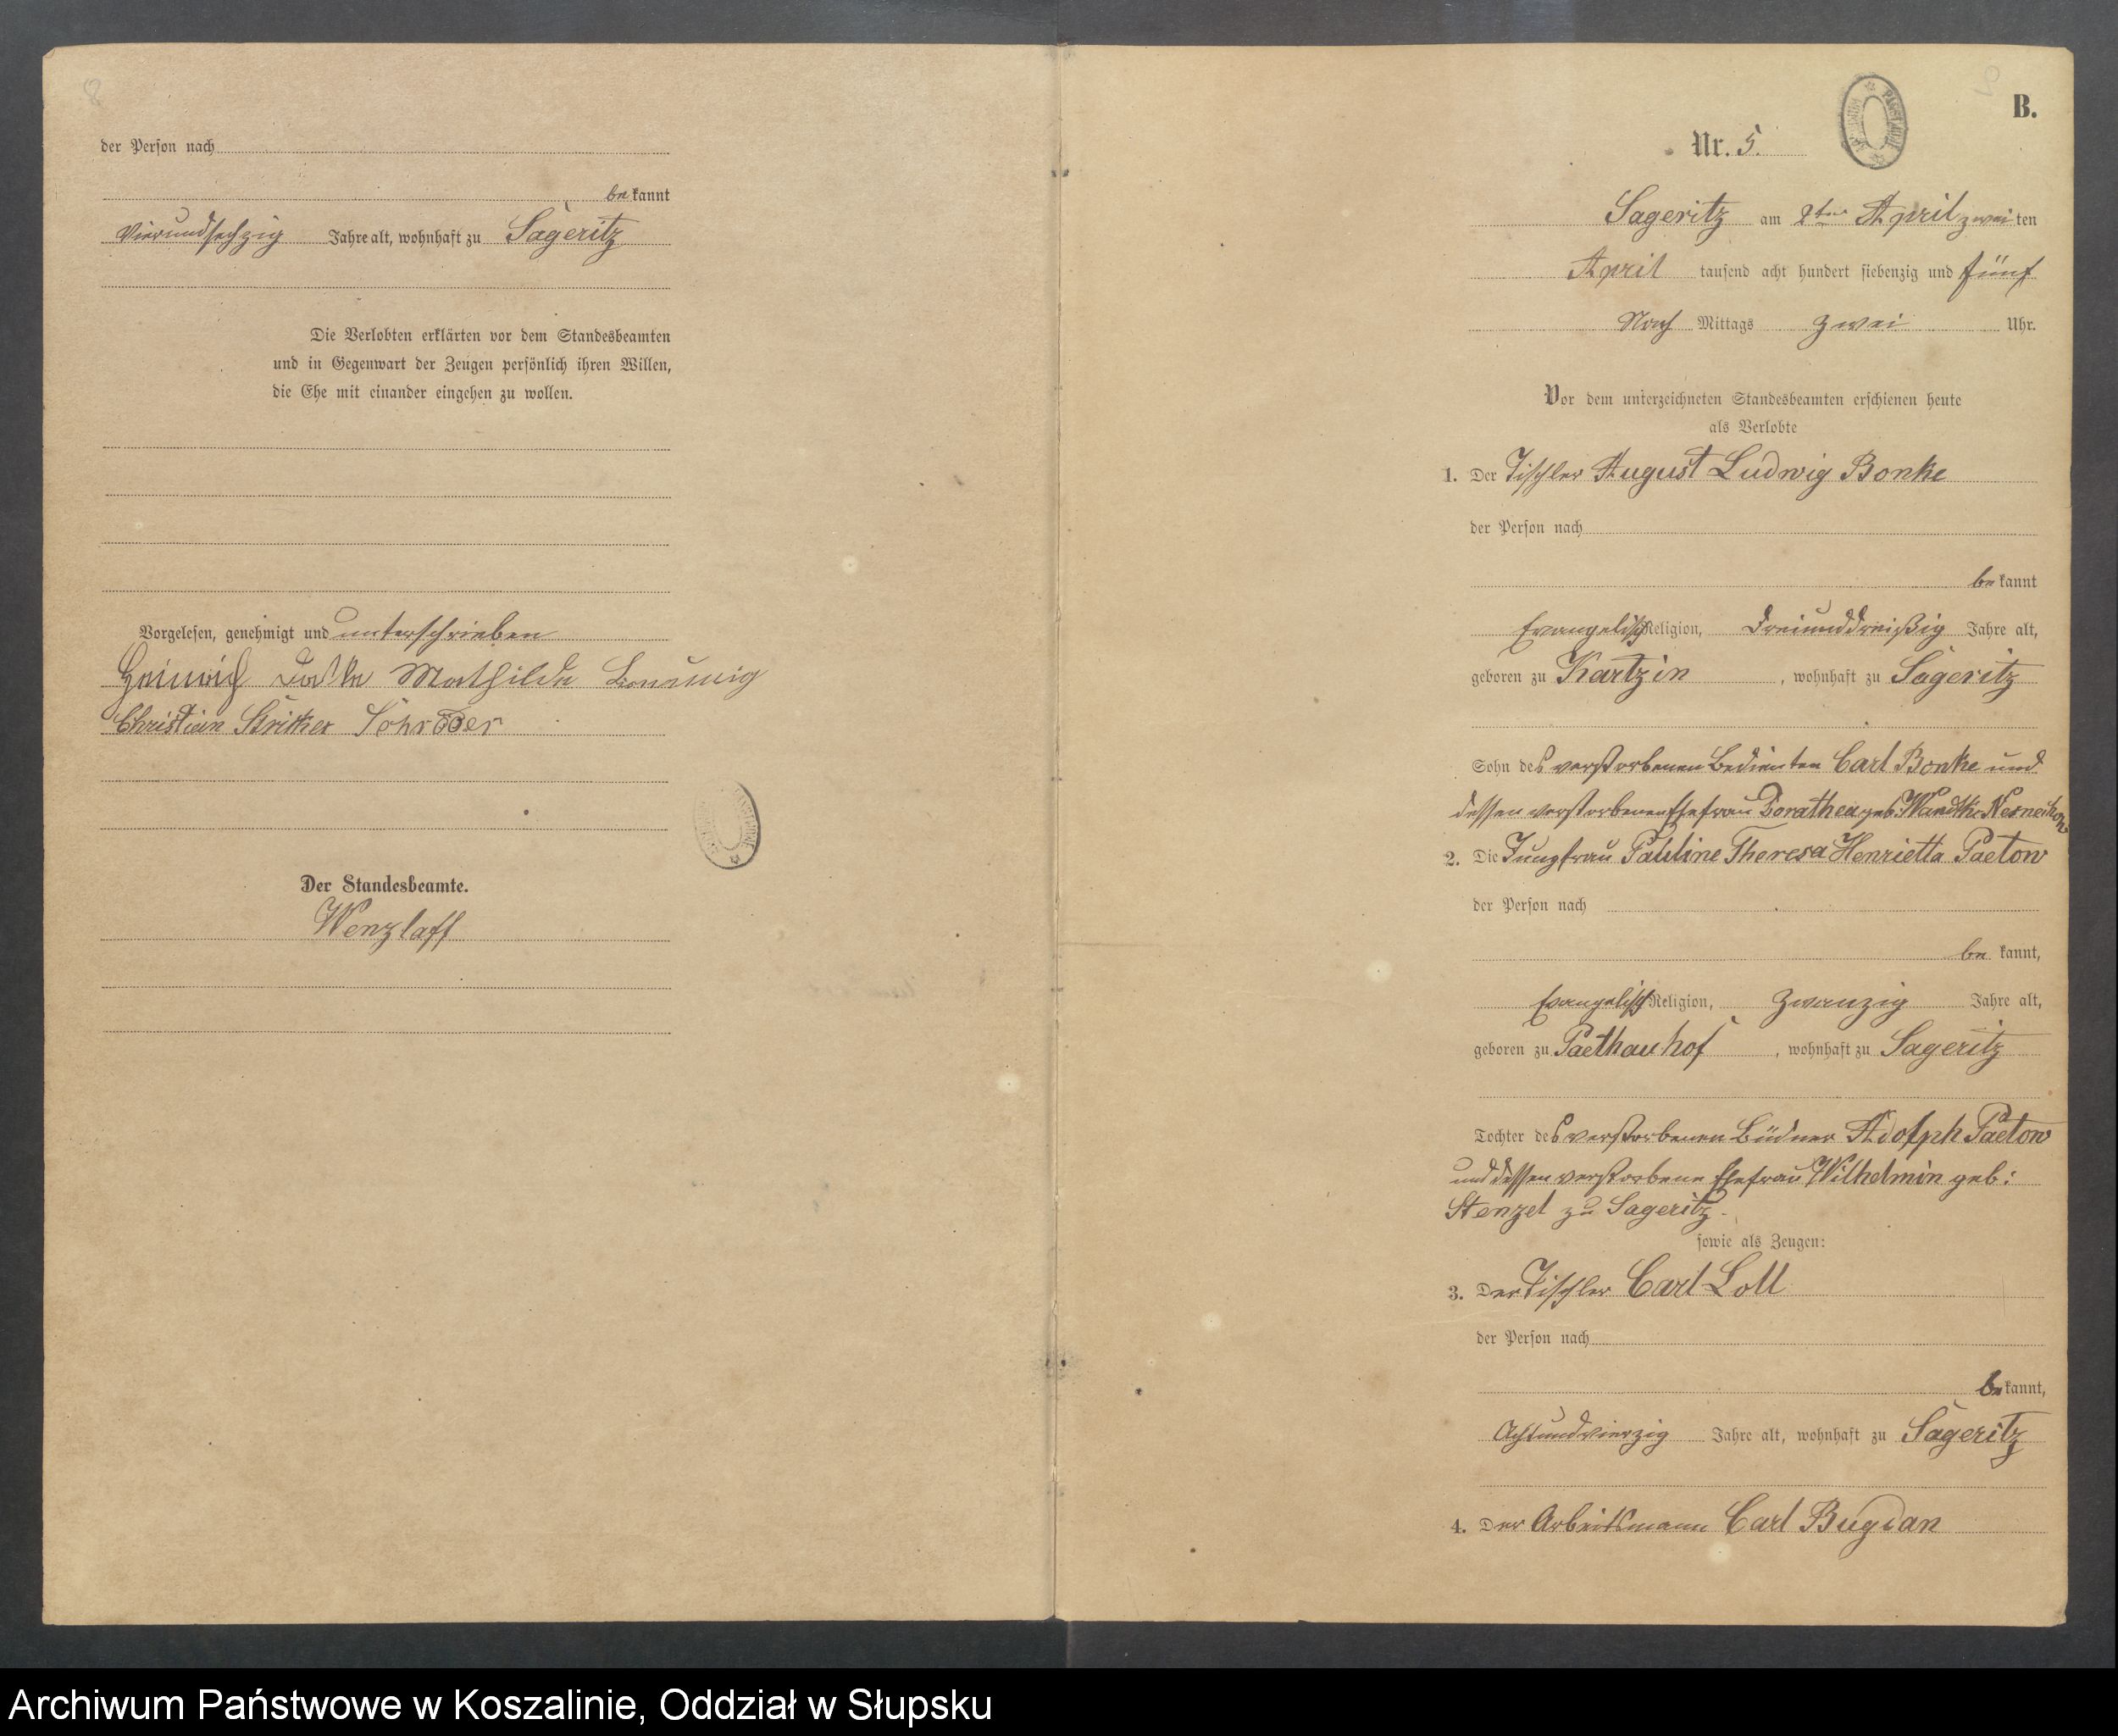 8
der Person nach
bekannt
Vierundsechzig Jahre alt, wohnhaft zu Sageritz
Die Verlobten erklärten vor dem Standesbeamten
und in Gegenwart der Zeugen persönlich ihren Willen,
die Ehe mit einander eingehen zu wollen.
Vorgelesen, genehmigt und unterschrieben
Heinrich Mathilde
Christian Schröder
Der Standesbeamte.
Wenzlaff
B.
Nr. 5.
Sageritz am 2ten April zweiten
April tausend acht hundert siebenzig und fünf
Nach Mittags zwei Uhr.
Vor dem unterzeichneten Standesbeamten erschienen heute
als Verlobte
1. Der Tischler August Ludwig Bonke
der Person nach
bekannt
Evangelisch Religion, Dreiunddreißig Jahre alt,
geboren zu Kartzin, wohnhaft zu Sageritz
Sohn des verstorbenen Bedienten Carl Bonke und
dessen verstorbenen Ehefrau Dorathea geb.
2. Die Jungfrau Pauline Theresa Henrietta Paetow
der Person nach
bekannt,
Evangelisch Religion, Zwanzig Jahre alt,
geboren zu Paethauhof, wohnhaft zu Sageritz
Tochter des verstorbenen Büdner Adolph Paetow
und dessen verstorbene Ehefrau Wilhelmin geb:
Stenzel zu Sageritz.
sowie als Zeugen:
3. Der Tischler Carl Loll
der Person nach
bekannt,
Achtundvierzig Jahre alt, wohnhaft zu Sageritz
4. Der Arbeitsmann Carl Bugdan
Archiwum Państwowe w Koszalinie, Oddział w Słupsku